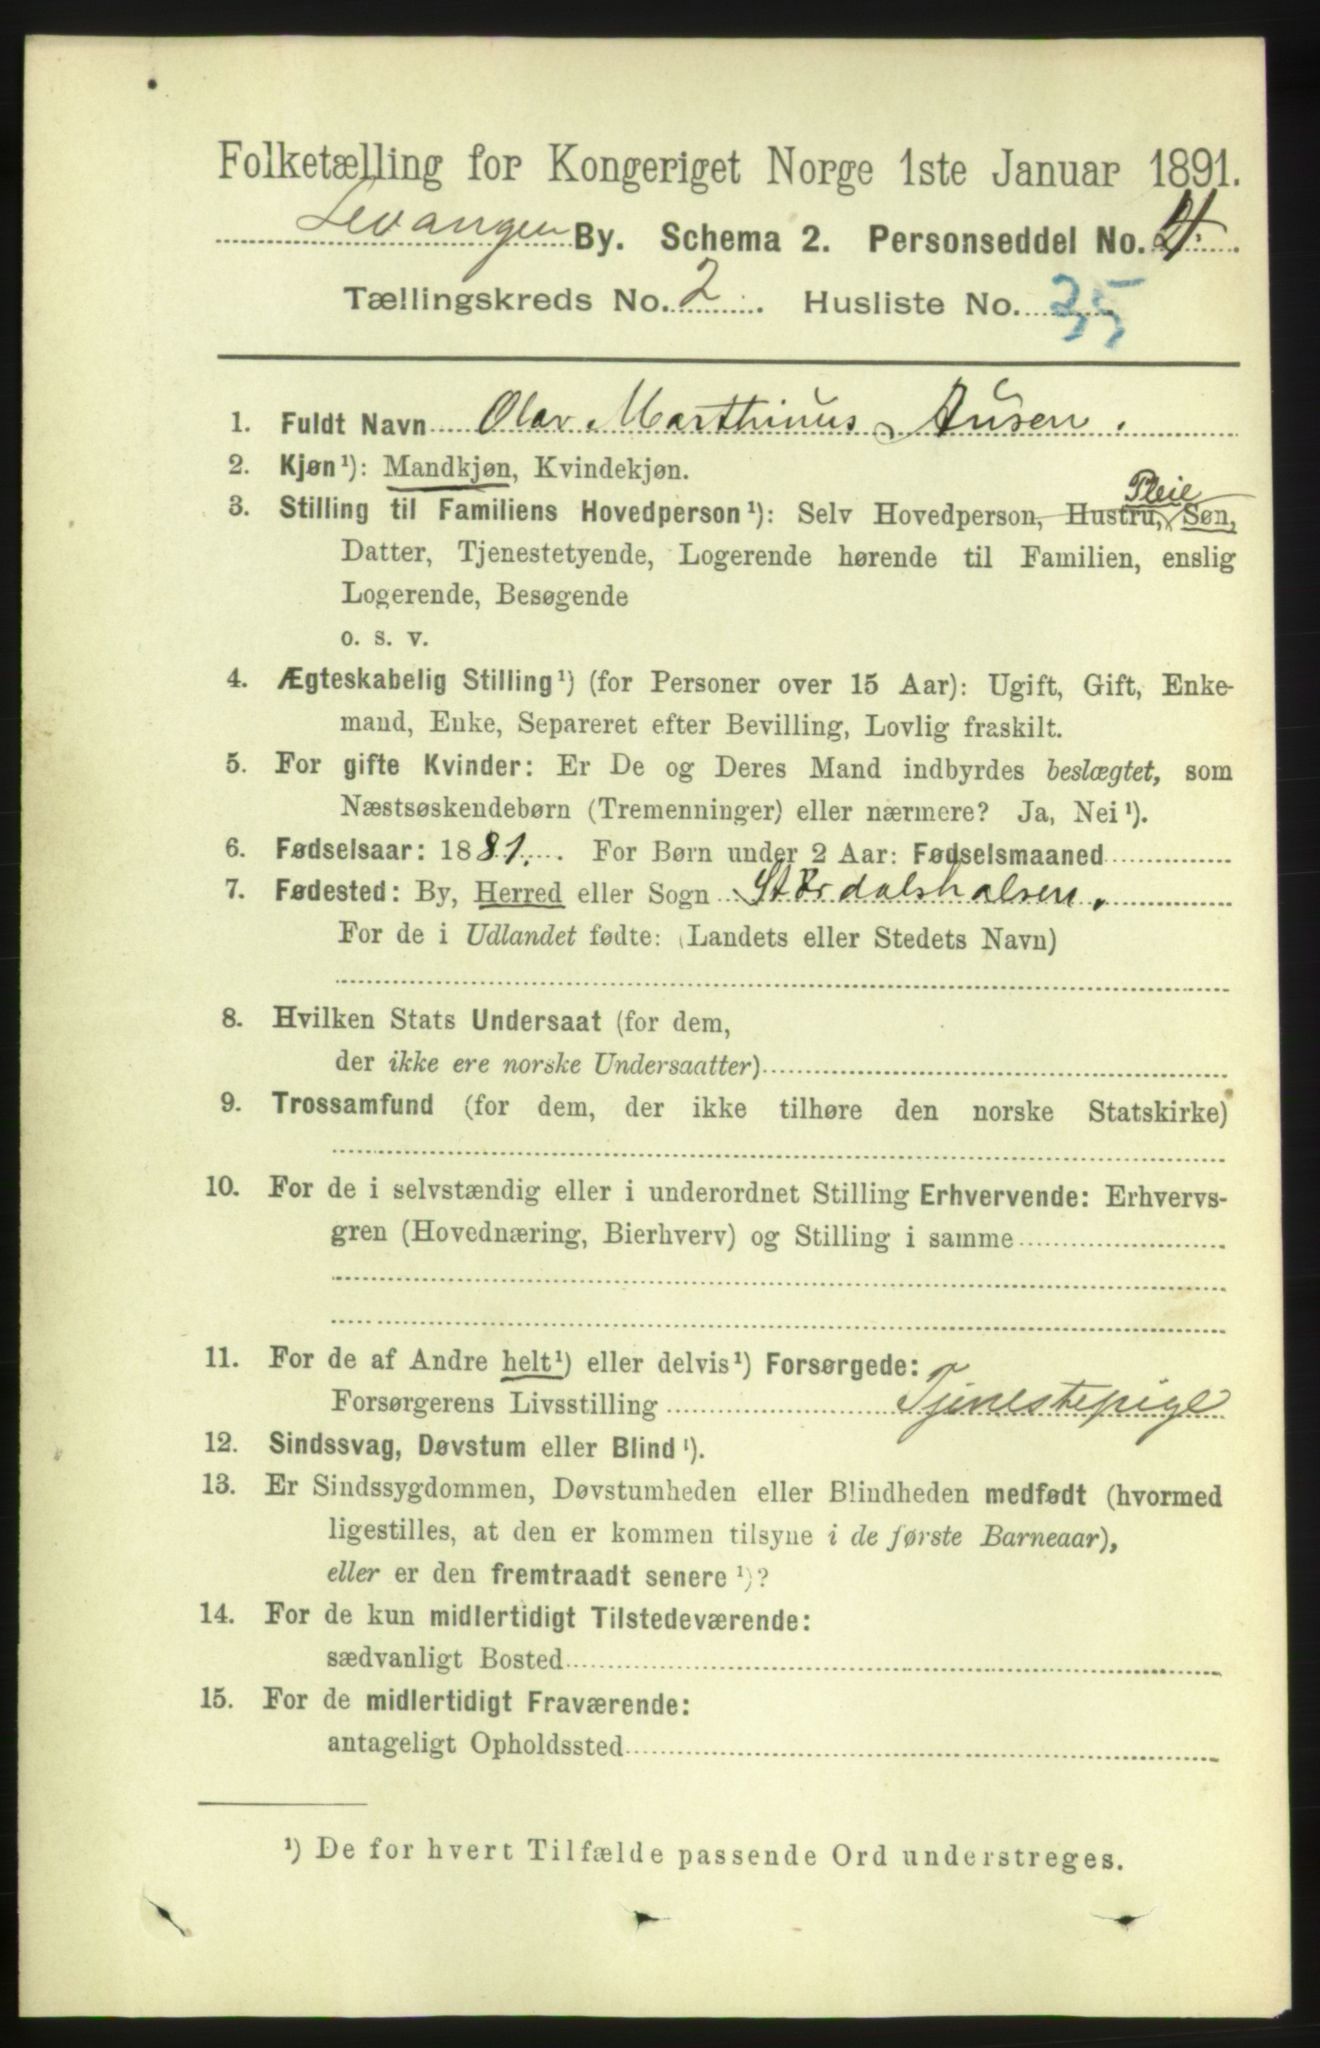 Folketælling for Kongeriget Norge 1ste Januar 1891.
Levangen By. Schema 2. Personseddel No. 4.
Tællingskreds No. 2. Husliste No. 35
1. Fuldt Navn Olav Marthinus Ausen.
2. Kjøn¹): Mandkjøn, Kvindekjøn.
Pleie
3. Stilling til Familiens Hovedperson¹): Selv Hovedperson, Hustru, Søn,
Datter, Tjenestetyende, Logerende hørende til Familien, enslig
Logerende, Besøgende
o. s. v.
4. Ægteskabelig Stilling¹) (for Personer over 15 Aar): Ugift, Gift, Enke-
mand, Enke, Separeret efter Bevilling, Lovlig fraskilt.
5. For gifte Kvinder: Er De og Deres Mand indbyrdes beslægtet, som
Næstsøskendebørn (Tremenninger) eller nærmere? Ja, Nei¹).
6. Fødselsaar: 1881. For Børn under 2 Aar: Fødselsmaaned
7. Fødested: By, Herred eller Sogn Størdalshalsen.
For de i Udlandet fødte: (Landets eller Stedets Navn)
8. Hvilken Stats Undersaat (for dem,
der ikke ere norske Undersaatter)
9. Trossamfund (for dem, der ikke tilhøre den norske Statskirke)
10. For de i selvstændig eller i underordnet Stilling Erhvervende: Erhvervs-
gren (Hovednæring, Bierhverv) og Stilling i samme
11. For de af Andre helt¹) eller delvis¹) Forsørgede:
Forsørgerens Livsstilling Tjenestepige
12. Sindssvag, Døvstum eller Blind¹).
13. Er Sindssygdommen, Døvstumheden eller Blindheden medfødt (hvormed
ligestilles, at den er kommen tilsyne i de første Barneaar),
eller er den fremtraadt senere¹)?
14. For de kun midlertidigt Tilstedeværende:
sædvanligt Bosted
15. For de midlertidigt Fraværende:
antageligt Opholdssted
¹) De for hvert Tilfælde passende Ord understreges.